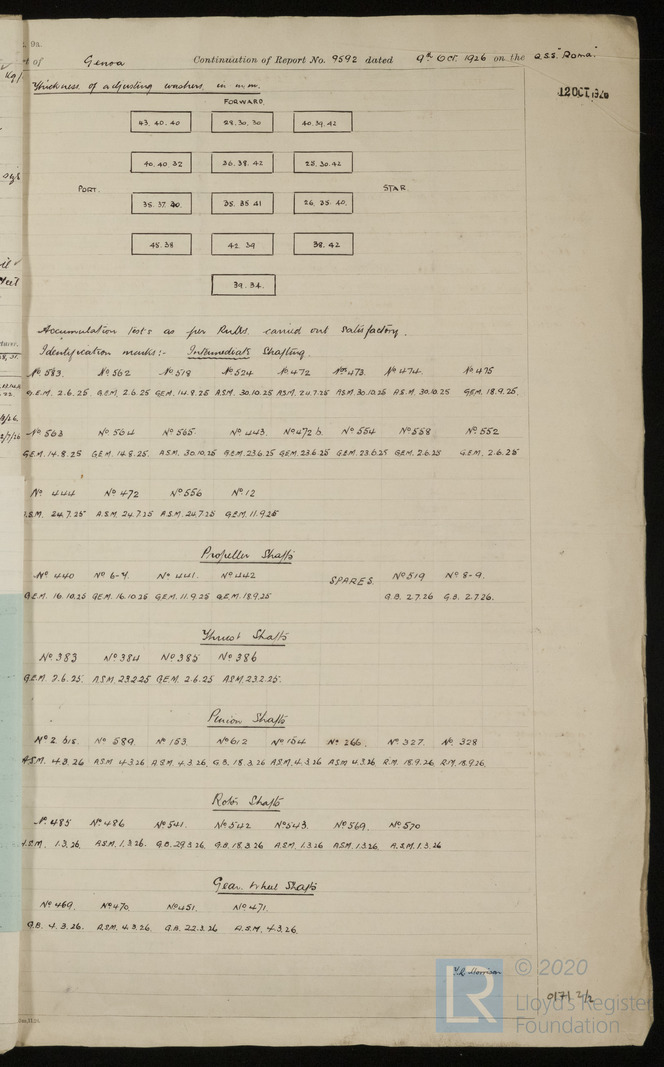 9a.
of Genoa Continuation of Report No. 9592 dated 9th Oct. 1926 on the Q.S.S. "Roma"
12 OCT 1926
Thickness of adjusting washers in m.m.
FORWARD.
43. 40. 40 28. 30. 30 40. 39. 42
40. 40. 32 36. 38. 42 25. 30. 42
PORT. STAR.
35. 37. 40. 35. 35 41 26. 35. 40.
45. 38 42. 39 38. 42
39. 34.
Accumulation tests as per Rules carried out satisfactory.
Identification marks:- Intermediate Shafting.
No 583. No 562 No 518 No 524 No 472 No 473. No 474. No 475
G.E.M. 2.6.25 G.E.M. 2.6.25 G.E.M. 14.8.25 A.S.M. 30.10.25 A.S.M. 24.7.25 A.S.M. 30.10.25 A.S.M. 30.10.25 G.E.M. 18.9.25.
No 563 No 564 No 565. No 443. No 472 b. No 554 No 558 No 552
G.E.M. 14.8.25. G.E.M. 14.8.25. A.S.M. 30.10.25 G.E.M. 23.6.25 G.E.M. 23.6.25 G.E.M. 23.6.25 G.E.M. 2.6.25 G.E.M. 2.6.25.
No 444 No 472 No 556 No 12
A.S.M. 24.7.25 A.S.M. 24.7.25 A.S.M. 24.7.25 G.E.M. 11.9.25
Propeller Shafts
No 440 No 6-7. No 441. No 442 SPARES. No 519 No 8-9.
G.E.M. 16.10.25 G.E.M. 16.10.25 G.E.M. 11.9.25 G.E.M. 18.9.25 G.B. 2.7.26 G.B. 2.7.26.
Thrust Shafts
No 383 No 384 No 385 No 386
G.E.M. 2.6.25. A.S.M. 23.2.25 G.E.M. 2.6.25 A.S.M. 23.2.25.
Pinion Shafts
No 2 bis. No 589. No 153. No 612 No 154 No 266. No 327. No 328
A.S.M. 4.3.26 A.S.M. 4.3.26 A.S.M. 4.3.26. G.B. 18.3.26 A.S.M. 4.3.26 A.S.M. 4.3.26 R.M. 18.9.26 R.M. 18.9.26.
Rotor Shafts
No 485 No 486 No 541. No 542 No 543. No 569. No 570
A.S.M. 1.3.26. A.S.M. 1.3.26. G.B. 29.3.26 G.B. 18.3.26 A.S.M. 1.3.26 A.S.M. 1.3.26. A.S.M. 1.3.26
Gear Wheel Shafts
No 469. No 470. No 451. No 471.
G.B. 4.3.26. A.S.M. 4.3.26. G.B. 22.3.26 A.S.M. 4.3.26.
Morrison
LR © 2020
Lloyd's Register
Foundation
0171 2/2